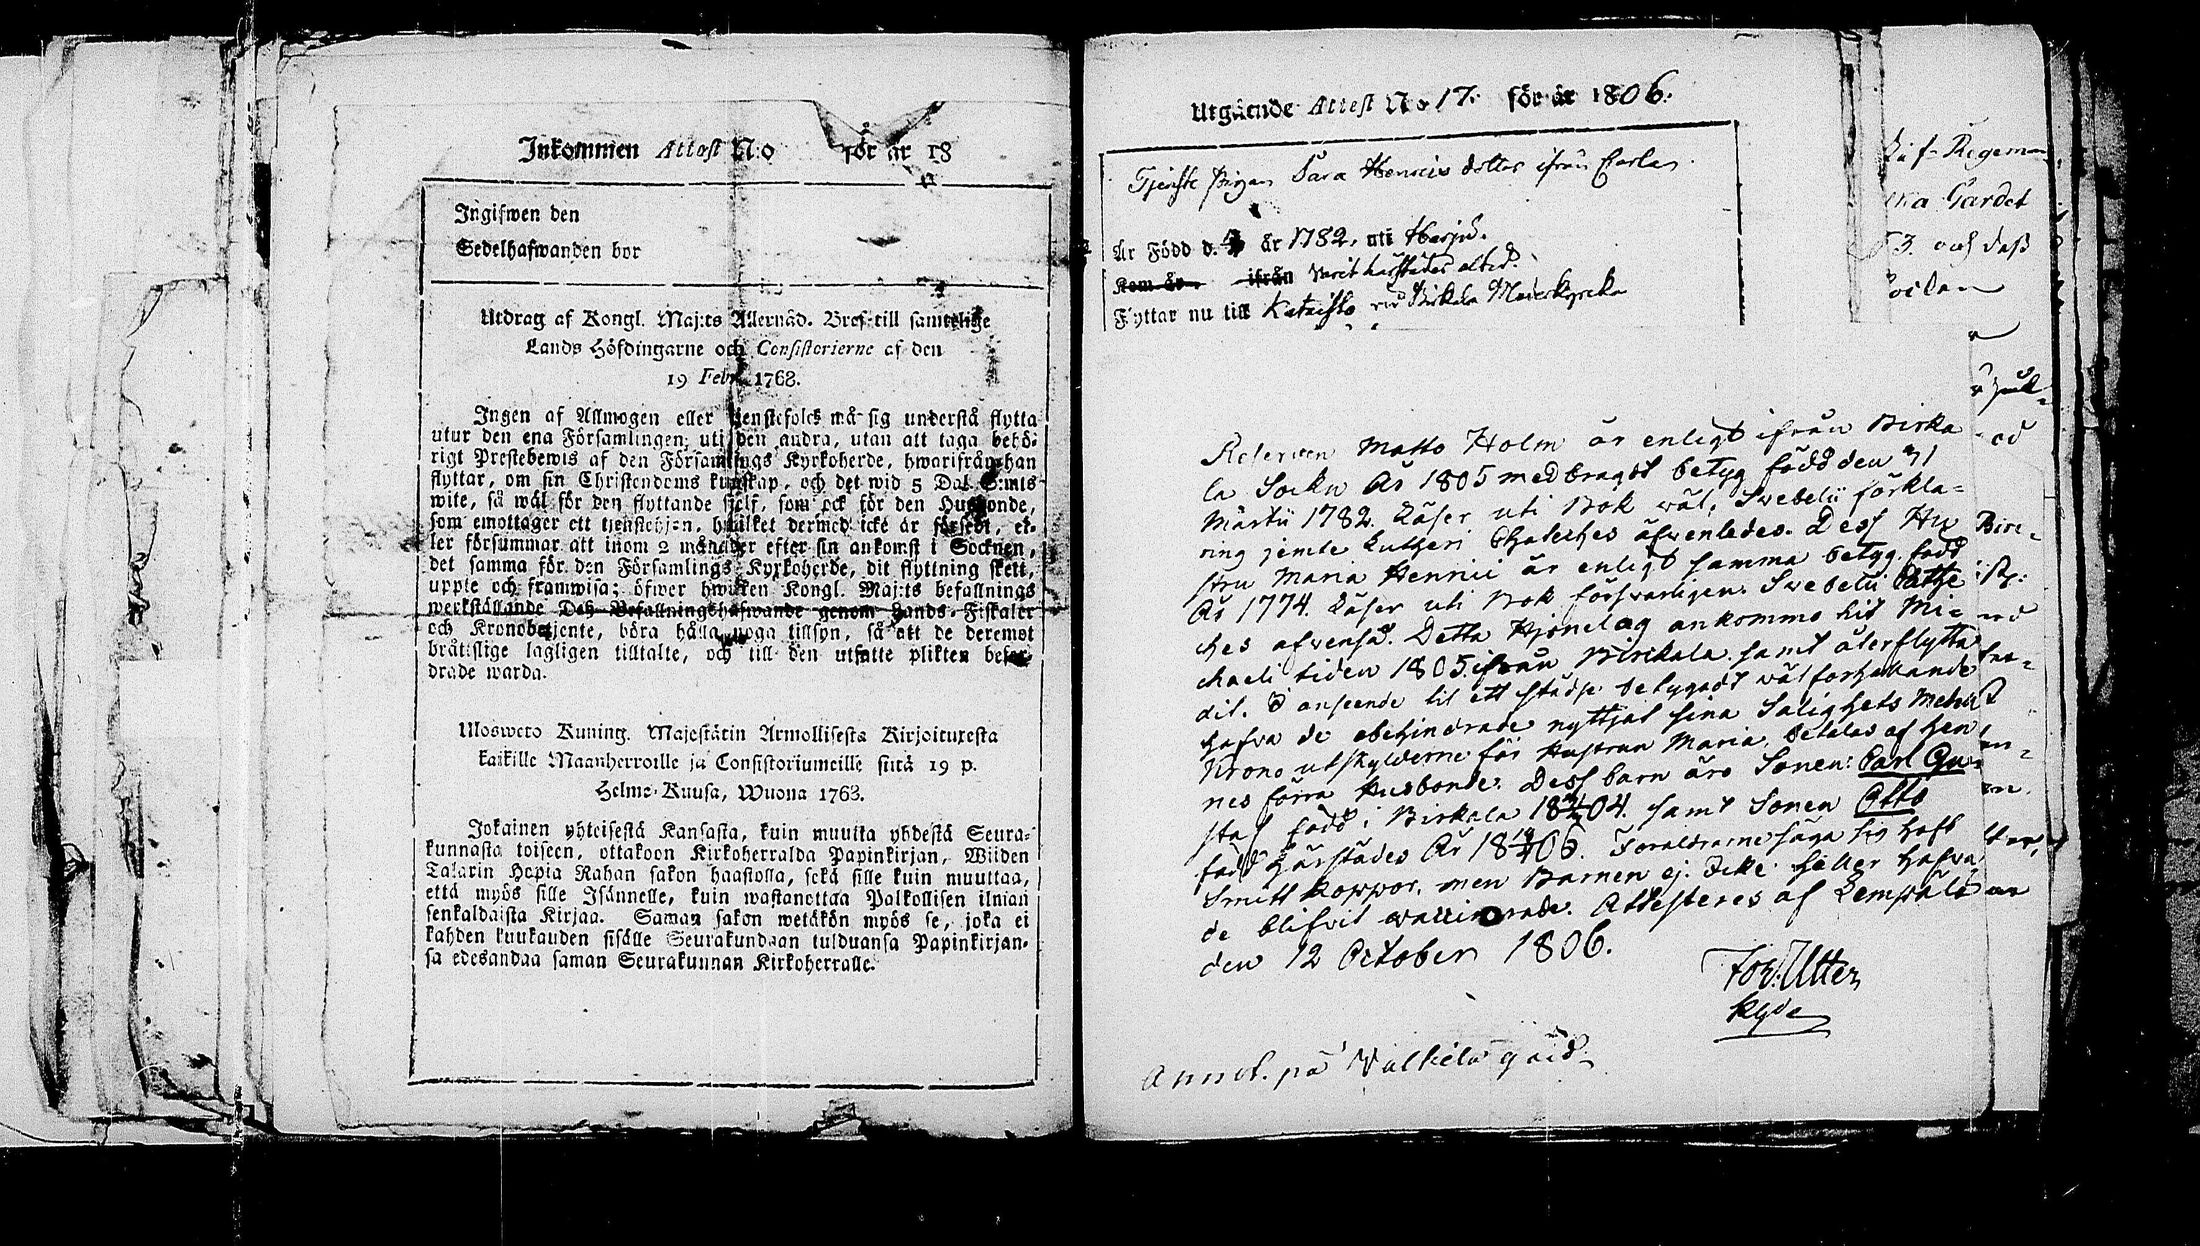 Inkommen Attest N:o för år 18
Ingifwen den
Sedelhafwanden bor
Utdrag af Kongl. Maj:ts Allernåd. Bref till samtelige
Lands Höfdingarne och Consistorierne af den
19 Febr. 1768.
Ingen af Allmogen eller tjenstefolck må sig understå flytta
utur den ena Församlingen uti den andra, utan att taga behö-
rigt Prestebewis af den Församlings Kyrkoherde, hwarifrån han
flyttar, om sin Christendoms kunskap, och det wid 5 Dal. S:mts
wite, så wäl för den flyttande sjelf, som ock för den Husbonde,
som emottager ett tjenstehjon, hwilket dermed icke är försedt, el-
ler försummar att inom 2 månader efter sin ankomst i Socknen,
det samma för den Församlings Kyrkoherde, dit flyttning skett,
uppte och framwisa; öfwer hwilken Kongl. Maj:ts befallnings
werkställande Deß Befallningshafwande genom Lands-Fiskaler
och Kronobetjente, böra hålla noga tillsyn, så att de deremot
brätslige lagligen tilltalte, och till den utsatte plikten befor-
drade warda.
Ulosweto Kuning. Majestätin Armollisesta Kirjoituxesta
kaikille Maanherroille ja Consistoriumeille siitä 19 p.
Helme-Kuusa, Wuona 1763.
Jokainen yhteisestä Kansasta, kuin muutta yhdestä Seura-
kunnasta toiseen, ottakoon Kirkoherralda Papinkirjan, Wiiden
Talarin Hopia Rahan sakon haastolla, sekä sille kuin muuttaa,
että myös sille Isännelle, kuin wastanottaa Palkollisen ilman
senkaldaista Kirjaa. Saman sakon wetäkön myös se, joka ei
kahden kuukauden sisälle Seurakundaan tulduansa Papinkirjan-
sa edesandaa saman Seurakunnan Kirkoherralle.
Utgående Attest No 17. för år 1806.
Tjenste Pigan Sara Henrics dotter ifrån
Är Född d. år 1782. uti
Kom år ifrån Varit härstädes altid.
Flyttar nu till Kataisto vid Birkala Moderkyrcka
Matts Holm är enligt ifrån Birka
la Sockn År 1805 medbragdt betyg född den 31
Martii 1782. Läser uti Bok wäl, Swebelii förkla=
ring jemte Lutheri Chateches äfwenledes. Dess Hu
stru Maria Henrici är enligt samma betyg född
År 1774. Läser uti Bok förswarligen. Swebelii Cathe
ches afvenså. Detta Hjonelag ankommo hit Mi=
chaeli tiden 1805. ifrån Birckala samt återflytta
dit. I anseende til ett städse betygadt wälförhållande
hafva de obehindrade nyttjat sina Salighets Medel
Krono utskylderne för Hustrun Maria betalas af hen
nes förra Husbonde. Dess barn äro Sonen: Carl Gu=
staf född i Birkala 1804. samt Sonen Otto
född härstädes År 1806. Föräldrarne säga sig haft
Smitt koppor, men Barnen ej. Icke heller hafva
de blifvit waccinerade. Attesteres af Lempälä
den 12 October 1806.
Annot. på gård.